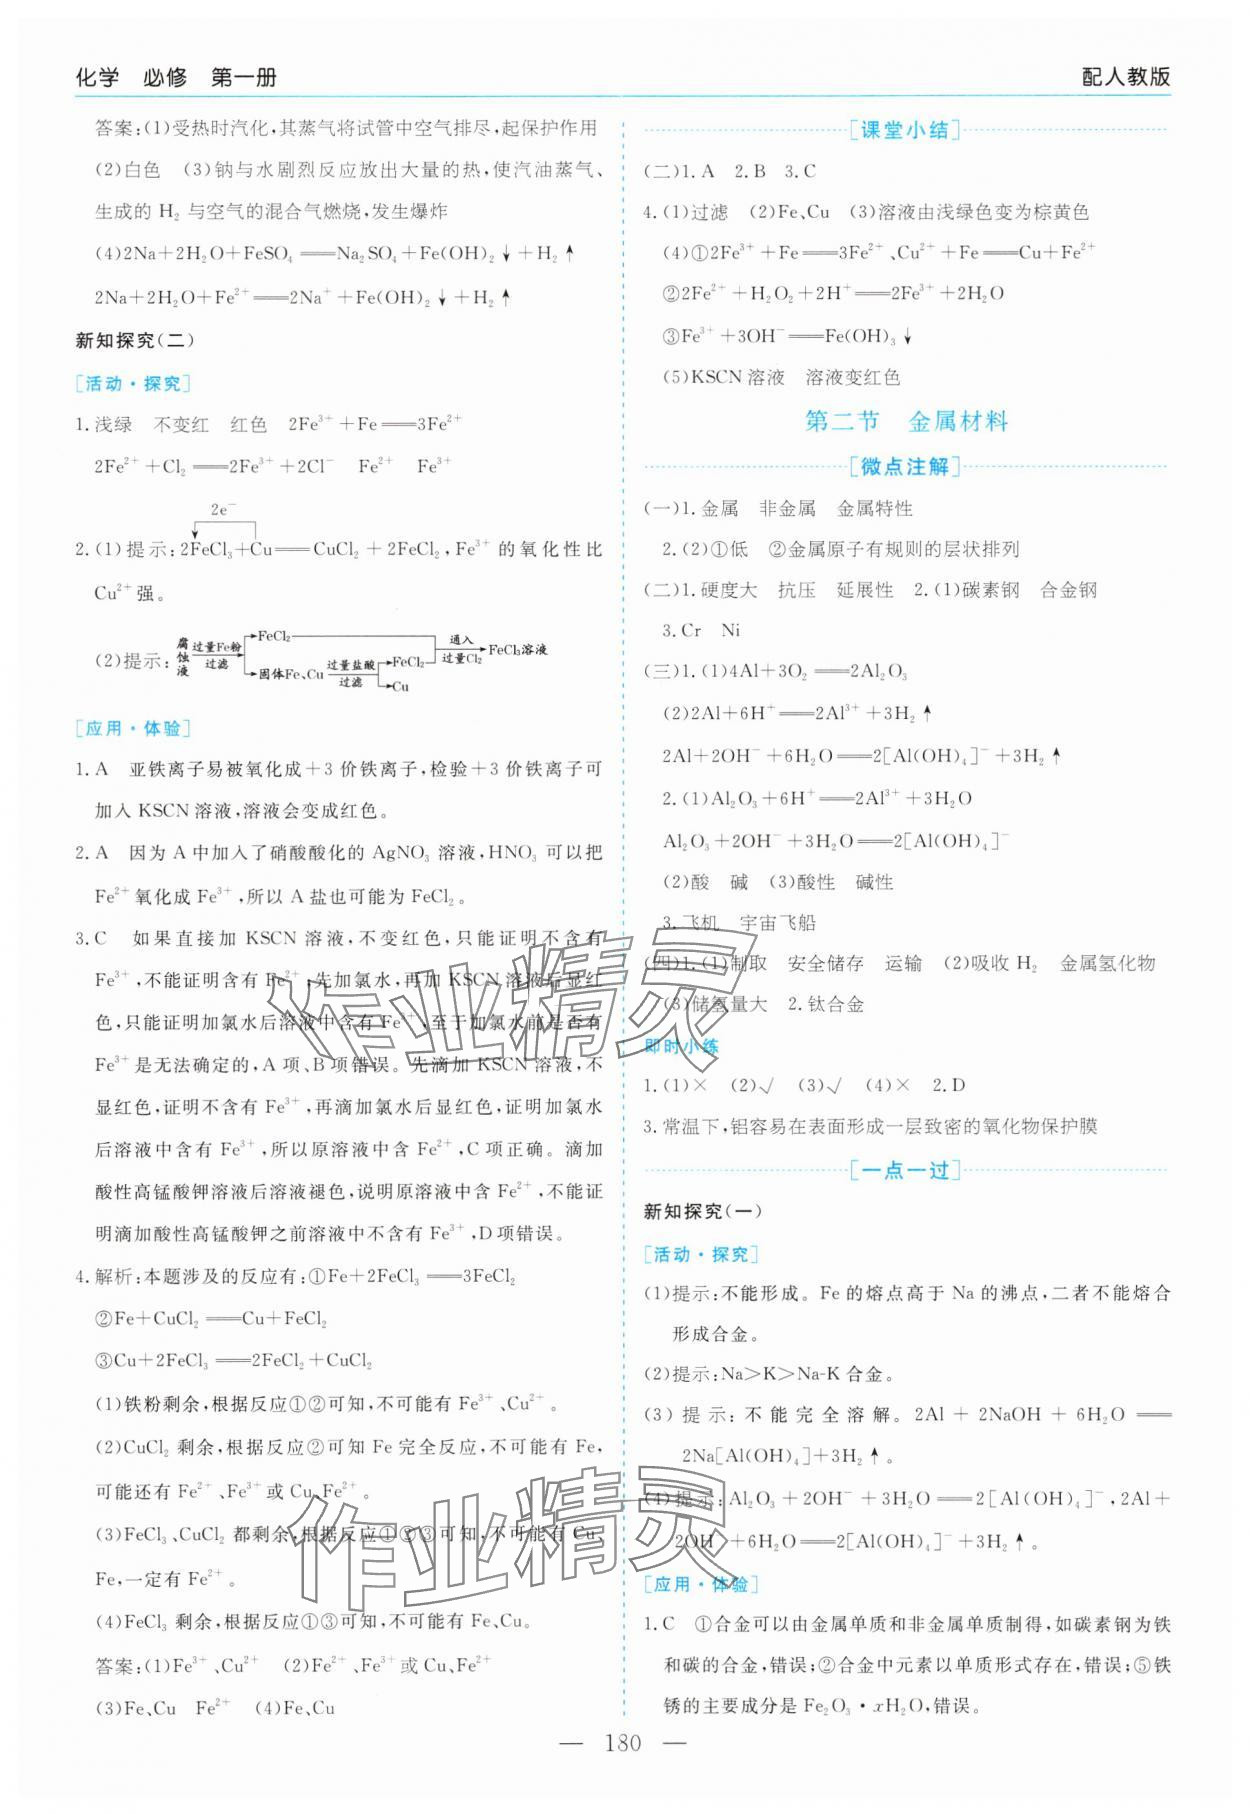 化学 必修 第一册
配人教版
答案:(1)受热时汽化,其蒸气将试管中空气排尽,起保护作用
(2)白色 (3)钠与水剧烈反应放出大量的热,使汽油蒸气、
生成的 H₂ 与空气的混合气燃烧,发生爆炸
(4)2Na+2H₂O+FeSO₄══Na₂SO₄+Fe(OH)₂↓+H₂↑
2Na+2H₂O+Fe²⁺══2Na⁺+Fe(OH)₂↓+H₂↑
新知探究(二)
[活动·探究]
1.浅绿 不变红 红色 2Fe³⁺+Fe══3Fe²⁺
2Fe²⁺+Cl₂══2Fe³⁺+2Cl⁻ Fe²⁺ Fe³⁺
2e⁻
2.(1)提示:2FeCl₃+Cu══CuCl₂+2FeCl₂,Fe³⁺的氧化性比
Cu²⁺强。
(2)提示:腐蚀液 过量Fe粉 过滤 FeCl₂ 固体Fe、Cu 过量盐酸 过滤 FeCl₂ Cu 通入 过量Cl₂ FeCl₃溶液
[应用·体验]
1.A 亚铁离子易被氧化成+3价铁离子,检验+3价铁离子可
加入 KSCN 溶液,溶液会变成红色。
2.A 因为 A 中加入了硝酸酸化的 AgNO₃ 溶液,HNO₃ 可以把
Fe²⁺氧化成 Fe³⁺,所以 A 盐也可能为 FeCl₂。
3.C 如果直接加 KSCN 溶液,不变红色,只能证明不含有
Fe³⁺,不能证明含有 Fe²⁺,先加氯水,再加 KSCN 溶液后显红
色,只能证明加氯水后溶液中含有 Fe³⁺,至于加氯水前是否有
Fe³⁺是无法确定的,A 项、B 项错误。先滴加 KSCN 溶液,不
显红色,证明不含有 Fe³⁺,再滴加氯水后显红色,证明加氯水
后溶液中含有 Fe³⁺,所以原溶液中含 Fe²⁺,C 项正确。滴加
酸性高锰酸钾溶液后溶液褪色,说明原溶液中含 Fe²⁺,不能证
明滴加酸性高锰酸钾之前溶液中不含有 Fe³⁺,D 项错误。
4.解析:本题涉及的反应有:①Fe+2FeCl₃══3FeCl₂
②Fe+CuCl₂══Cu+FeCl₂
③Cu+2FeCl₃══2FeCl₂+CuCl₂
(1)铁粉剩余,根据反应①②可知,不可能有 Fe³⁺、Cu²⁺。
(2)CuCl₂ 剩余,根据反应②可知 Fe 完全反应,不可能有 Fe,
可能还有 Fe²⁺、Fe³⁺或 Cu、Fe²⁺。
(3)FeCl₃、CuCl₂ 都剩余,根据反应①②③可知,不可能有 Cu、
Fe,一定有 Fe²⁺。
(4)FeCl₃ 剩余,根据反应①③可知,不可能有 Fe、Cu。
答案:(1)Fe³⁺、Cu²⁺ (2)Fe²⁺、Fe³⁺或 Cu、Fe²⁺
(3)Fe、Cu Fe²⁺ (4)Fe、Cu
[课堂小结]
(二)1.A 2.B 3.C
4.(1)过滤 (2)Fe、Cu (3)溶液由浅绿色变为棕黄色
(4)①2Fe³⁺+Fe══3Fe²⁺、Cu²⁺+Fe══Cu+Fe²⁺
②2Fe²⁺+H₂O₂+2H⁺══2Fe³⁺+2H₂O
③Fe³⁺+3OH⁻══Fe(OH)₃↓
(5)KSCN 溶液 溶液变红色
第二节 金属材料
[微点注解]
(一)1.金属 非金属 金属特性
2.(2)①低 ②金属原子有规则的层状排列
(二)1.硬度大 抗压 延展性 2.(1)碳素钢 合金钢
3.Cr Ni
(三)1.(1)4Al+3O₂══2Al₂O₃
(2)2Al+6H⁺══2Al³⁺+3H₂↑
2Al+2OH⁻+6H₂O══2[Al(OH)₄]⁻+3H₂↑
2.(1)Al₂O₃+6H⁺══2Al³⁺+3H₂O
Al₂O₃+2OH⁻+3H₂O══2[Al(OH)₄]⁻
(2)酸 碱 (3)酸性 碱性
3.飞机 宇宙飞船
(四)1.(1)制取 安全储存 运输 (2)吸收 H₂ 金属氢化物
(3)储氢量大 2.钛合金
即时小练
1.(1)× (2)√ (3)√ (4)× 2.D
3.常温下,铝容易在表面形成一层致密的氧化物保护膜
[一点一过]
新知探究(一)
[活动·探究]
(1)提示:不能形成。Fe 的熔点高于 Na 的沸点,二者不能熔合
形成合金。
(2)提示:Na>K>Na-K 合金。
(3)提示:不能完全溶解。2Al+2NaOH+6H₂O══
2Na[Al(OH)₄]+3H₂↑。
(4)提示:Al₂O₃+2OH⁻+3H₂O══2[Al(OH)₄]⁻,2Al+
2OH⁻+6H₂O══2[Al(OH)₄]⁻+3H₂↑。
[应用·体验]
1.C ①合金可以由金属单质和非金属单质制得,如碳素钢为铁
和碳的合金,错误;②合金中元素以单质形式存在,错误;⑤铁
锈的主要成分是 Fe₂O₃·xH₂O,错误。
作业精灵
作业精灵
— 180 —